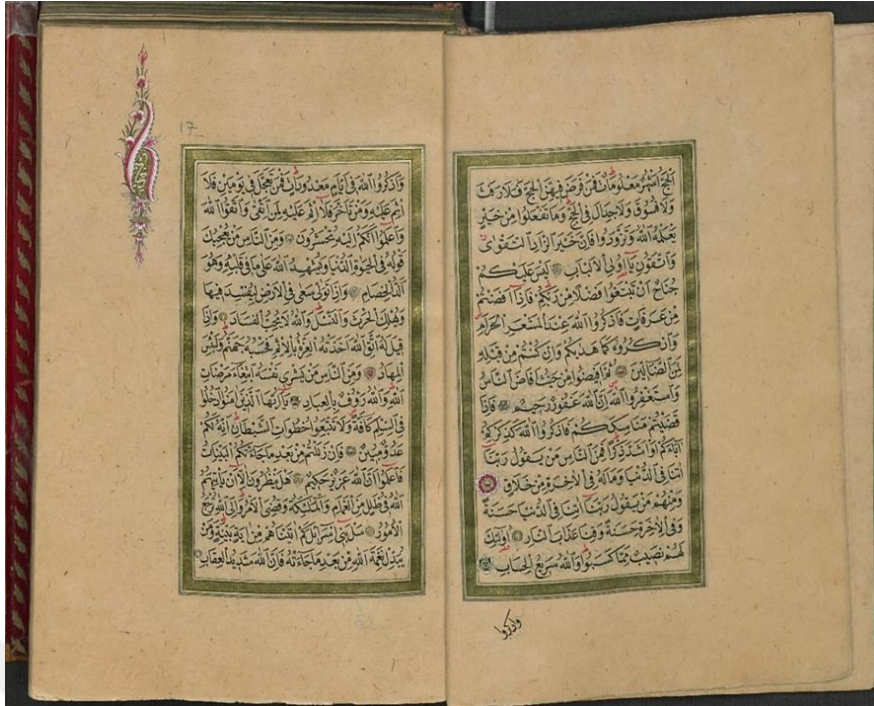 اَلْحَجُّ اَشْهُرٌ مَعْلُومَاتٌ فَمَنْ فَرَضَ فِيهِنَّ الْحَجَّ فَلَا رَفَثَ
وَلَا فُسُوقَ وَلَا جِدَالَ فِي الْحَجِّ وَمَا تَفْعَلُوا مِنْ خَيْرٍ
يَعْلَمْهُ اللّٰهُ وَتَزَوَّدُوا فَاِنَّ خَيْرَ الزَّادِ التَّقْوٰى
وَاتَّقُونِ يَا اُولِي الْاَلْبَابِ لَيْسَ عَلَيْكُمْ
جُنَاحٌ اَنْ تَبْتَغُوا فَضْلًا مِنْ رَبِّكُمْ فَاِذَا اَفَضْتُمْ
مِنْ عَرَفَاتٍ فَاذْكُرُوا اللّٰهَ عِنْدَ الْمَشْعَرِ الْحَرَامِ
وَاذْكُرُوهُ كَمَا هَدٰيكُمْ وَاِنْ كُنْتُمْ مِنْ قَبْلِهِ
لَمِنَ الضَّالِّينَ ثُمَّ اَفِيضُوا مِنْ حَيْثُ اَفَاضَ النَّاسُ
وَاسْتَغْفِرُوا اللّٰهَ اِنَّ اللّٰهَ غَفُورٌ رَحِيمٌ فَاِذَا
قَضَيْتُمْ مَنَاسِكَكُمْ فَاذْكُرُوا اللّٰهَ كَذِكْرِكُمْ
اٰبَاءَكُمْ اَوْ اَشَدَّ ذِكْرًا فَمِنَ النَّاسِ مَنْ يَقُولُ رَبَّنَا
اٰتِنَا فِي الدُّنْيَا وَمَالَهُ فِي الْاٰخِرَةِ مِنْ خَلَاقٍ
وَمِنْهُمْ مَنْ يَقُولُ رَبَّنَا اٰتِنَا فِي الدُّنْيَا حَسَنَةً
وَفِي الْاٰخِرَةِ حَسَنَةً وَقِنَا عَذَابَ النَّارِ اُولٰئِكَ
لَهُمْ نَصِيبٌ مِمَّا كَسَبُوا وَاللّٰهُ سَرِيعُ الْحِسَابِ
واذكروا
17
وَاذْكُرُوا اللّٰهَ فِي اَيَّامٍ مَعْدُودَاتٍ فَمَنْ تَعَجَّلَ فِي يَوْمَيْنِ فَلَا
اِثْمَ عَلَيْهِ وَمَنْ تَاَخَّرَ فَلَا اِثْمَ عَلَيْهِ لِمَنِ اتَّقٰى وَاتَّقُوا اللّٰهَ
وَاعْلَمُوا اَنَّكُمْ اِلَيْهِ تُحْشَرُونَ وَمِنَ النَّاسِ مَنْ يُعْجِبُكَ
قَوْلُهُ فِي الْحَيٰوةِ الدُّنْيَا وَيُشْهِدُ اللّٰهَ عَلٰى مَا فِي قَلْبِهِ وَهُوَ
اَلَدُّ الْخِصَامِ وَاِذَا تَوَلّٰى سَعٰى فِي الْاَرْضِ لِيُفْسِدَ فِيهَا
وَيُهْلِكَ الْحَرْثَ وَالنَّسْلَ وَاللّٰهُ لَا يُحِبُّ الْفَسَادَ وَاِذَا
قِيلَ لَهُ اتَّقِ اللّٰهَ اَخَذَتْهُ الْعِزَّةُ بِالْاِثْمِ فَحَسْبُهُ جَهَنَّمُ وَلَبِئْسَ
الْمِهَادُ وَمِنَ النَّاسِ مَنْ يَشْرِي نَفْسَهُ ابْتِغَاءَ مَرْضَاتِ
اللّٰهِ وَاللّٰهُ رَؤُفٌ بِالْعِبَادِ يَا اَيُّهَا الَّذِينَ اٰمَنُوا ادْخُلُوا
فِي السِّلْمِ كَافَّةً وَلَا تَتَّبِعُوا خُطُوَاتِ الشَّيْطَانِ اِنَّهُ لَكُمْ
عَدُوٌّ مُبِينٌ فَاِنْ زَلَلْتُمْ مِنْ بَعْدِ مَا جَاءَتْكُمُ الْبَيِّنَاتُ
فَاعْلَمُوا اَنَّ اللّٰهَ عَزِيزٌ حَكِيمٌ هَلْ يَنْظُرُونَ اِلَّا اَنْ يَاْتِيَهُمُ
اللّٰهُ فِي ظُلَلٍ مِنَ الْغَمَامِ وَالْمَلٰئِكَةُ وَقُضِيَ الْاَمْرُ وَاِلَى اللّٰهِ تُرْجَعُ
الْاُمُورُ سَلْ بَنِي اِسْرَائِيلَ كَمْ اٰتَيْنَاهُمْ مِنْ اٰيَةٍ بَيِّنَةٍ وَمَنْ
يُبَدِّلْ نِعْمَةَ اللّٰهِ مِنْ بَعْدِ مَا جَاءَتْهُ فَاِنَّ اللّٰهَ شَدِيدُ الْعِقَابِ